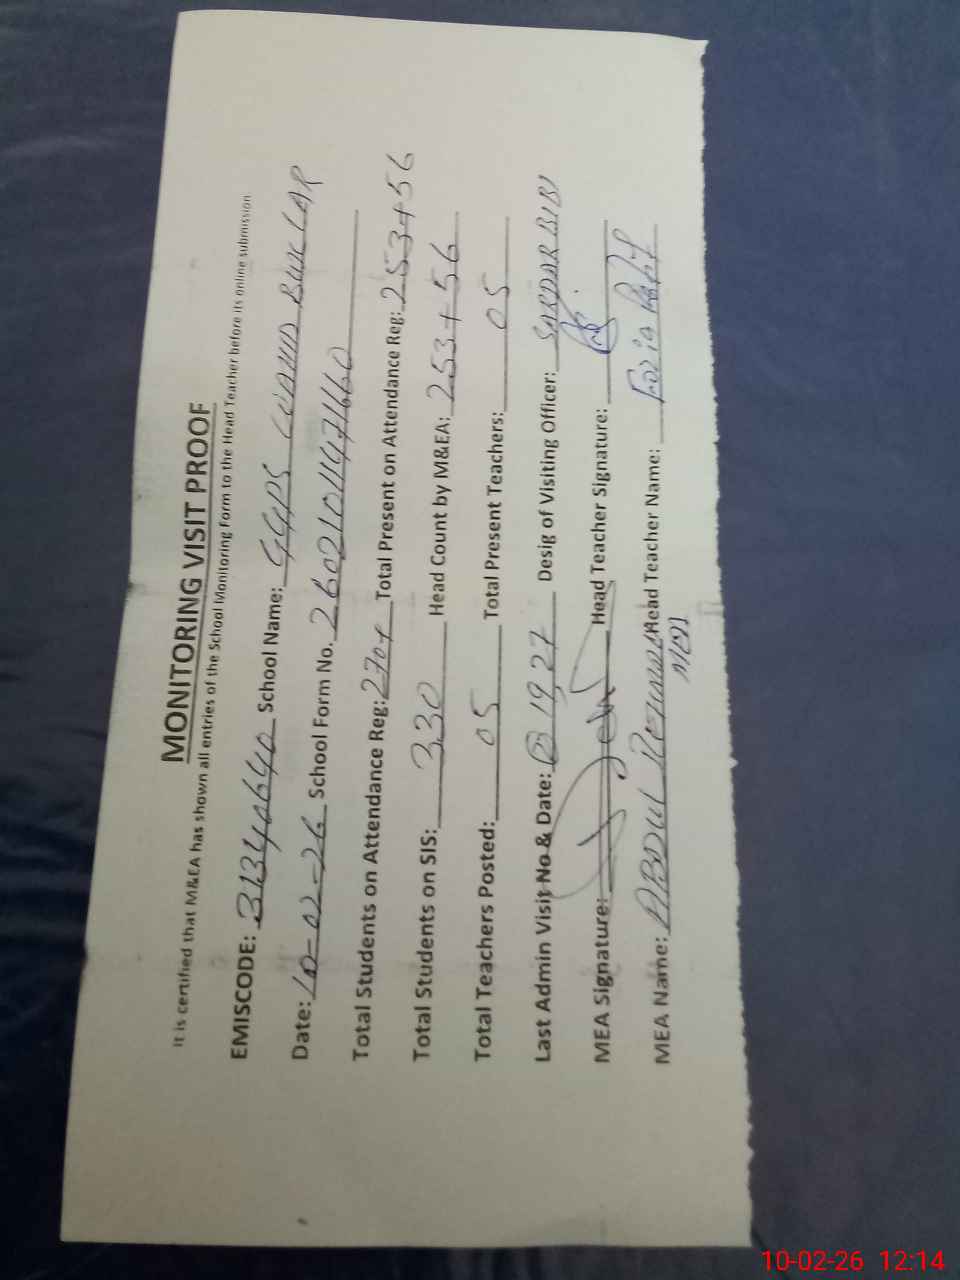 MONITORING VISIT PROOF
It is certified that M&EA has shown all entries of the School Monitoring Form to the Head Teacher before its online submission
EMISCODE: 31340640 School Name: GGPS
Date: 10-02-26 School Form No. 
Total Students on Attendance Reg: 270+ Total Present on Attendance Reg: 253+56
Total Students on SIS: 330 Head Count by M&EA: 253+56
Total Teachers Posted: 05 Total Present Teachers: 05
Last Admin Visit No & Date: Desig of Visiting Officer: SARDAR BIBI
MEA Signature: Head Teacher Signature:
MEA Name: ABDUL REHMAN Head Teacher Name: Fozia
10-02-26 12:14